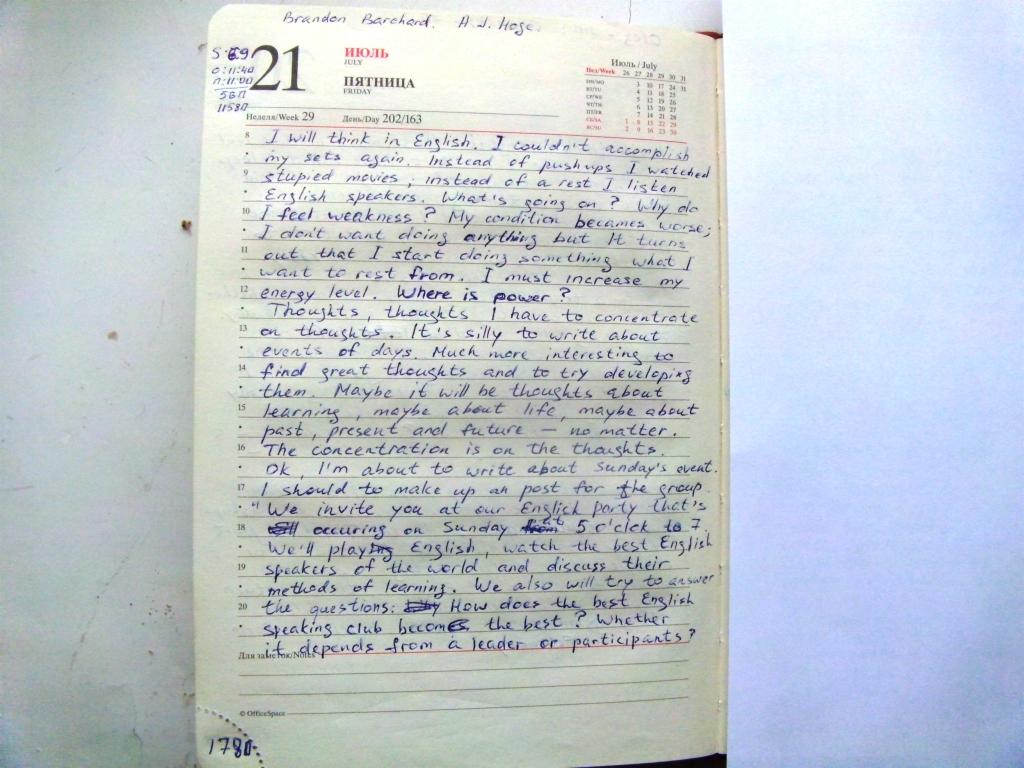 Brandon Barchard. A. J. Hoge.
21
ИЮЛЬ
JULY
ПЯТНИЦА
FRIDAY
Июль / July
Нед/Week 26 27 28 29 30 31
ПН/МО 3 10 17 24 31
ВТ/TU 4 11 18 25
СР/WE 5 12 19 26
ЧТ/TH 6 13 20 27
ПТ/FR 7 14 21 28
СБ/SA 1 8 15 22 29
ВС/SU 2 9 16 23 30
0:11:40
П:11:00
56П
1158П
Неделя/Week 29 День/Day 202/163
8 I will think in English. I couldn't accomplish
my sets again. Instead of pushups I watched
9 stupied movies; instead of a rest I listen
English speakers. What's going on? Why do
10 I feel weakness? My condition becames worse;
I don't want doing anything but it turns
11 out that I start doing something what I
want to rest from. I must increase my
12 energy level. Where is power?
Thoughts, thoughts I have to concentrate
13 on thoughts. It's silly to write about
events of days. Much more interesting to
14 find great thoughts and to try developing
them. Maybe it will be thoughts about
15 learning, maybe about life, maybe about
past, present and future — no matter.
16 The concentration is on the thoughts.
Ok, I'm about to write about Sunday's event.
17 I should to make up an post for the group.
"We invite you at our English party that's
18 occuring on Sunday at 5 o'clck to 7.
We'll playing English, watch the best English
19 speakers of the world and discuss their
methods of learning. We also will try to answer
20 the questions: How does the best English
speaking club becomes the best? Whether
it depends from a leader or participants?
Для заметок/Notes
© OfficeSpace